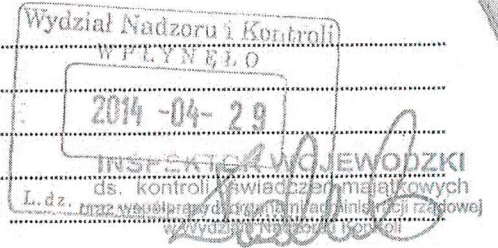 Wydział Nadzoru i Kontroli
WPŁYNĘŁO
2014 -04- 29
INSPEKTOR WOJEWÓDZKI
ds. kontroli oświadczeń majątkowych
oraz współpracy z organami administracji rządowej
w Wydziale Nadzoru i Kontroli
L.dz.